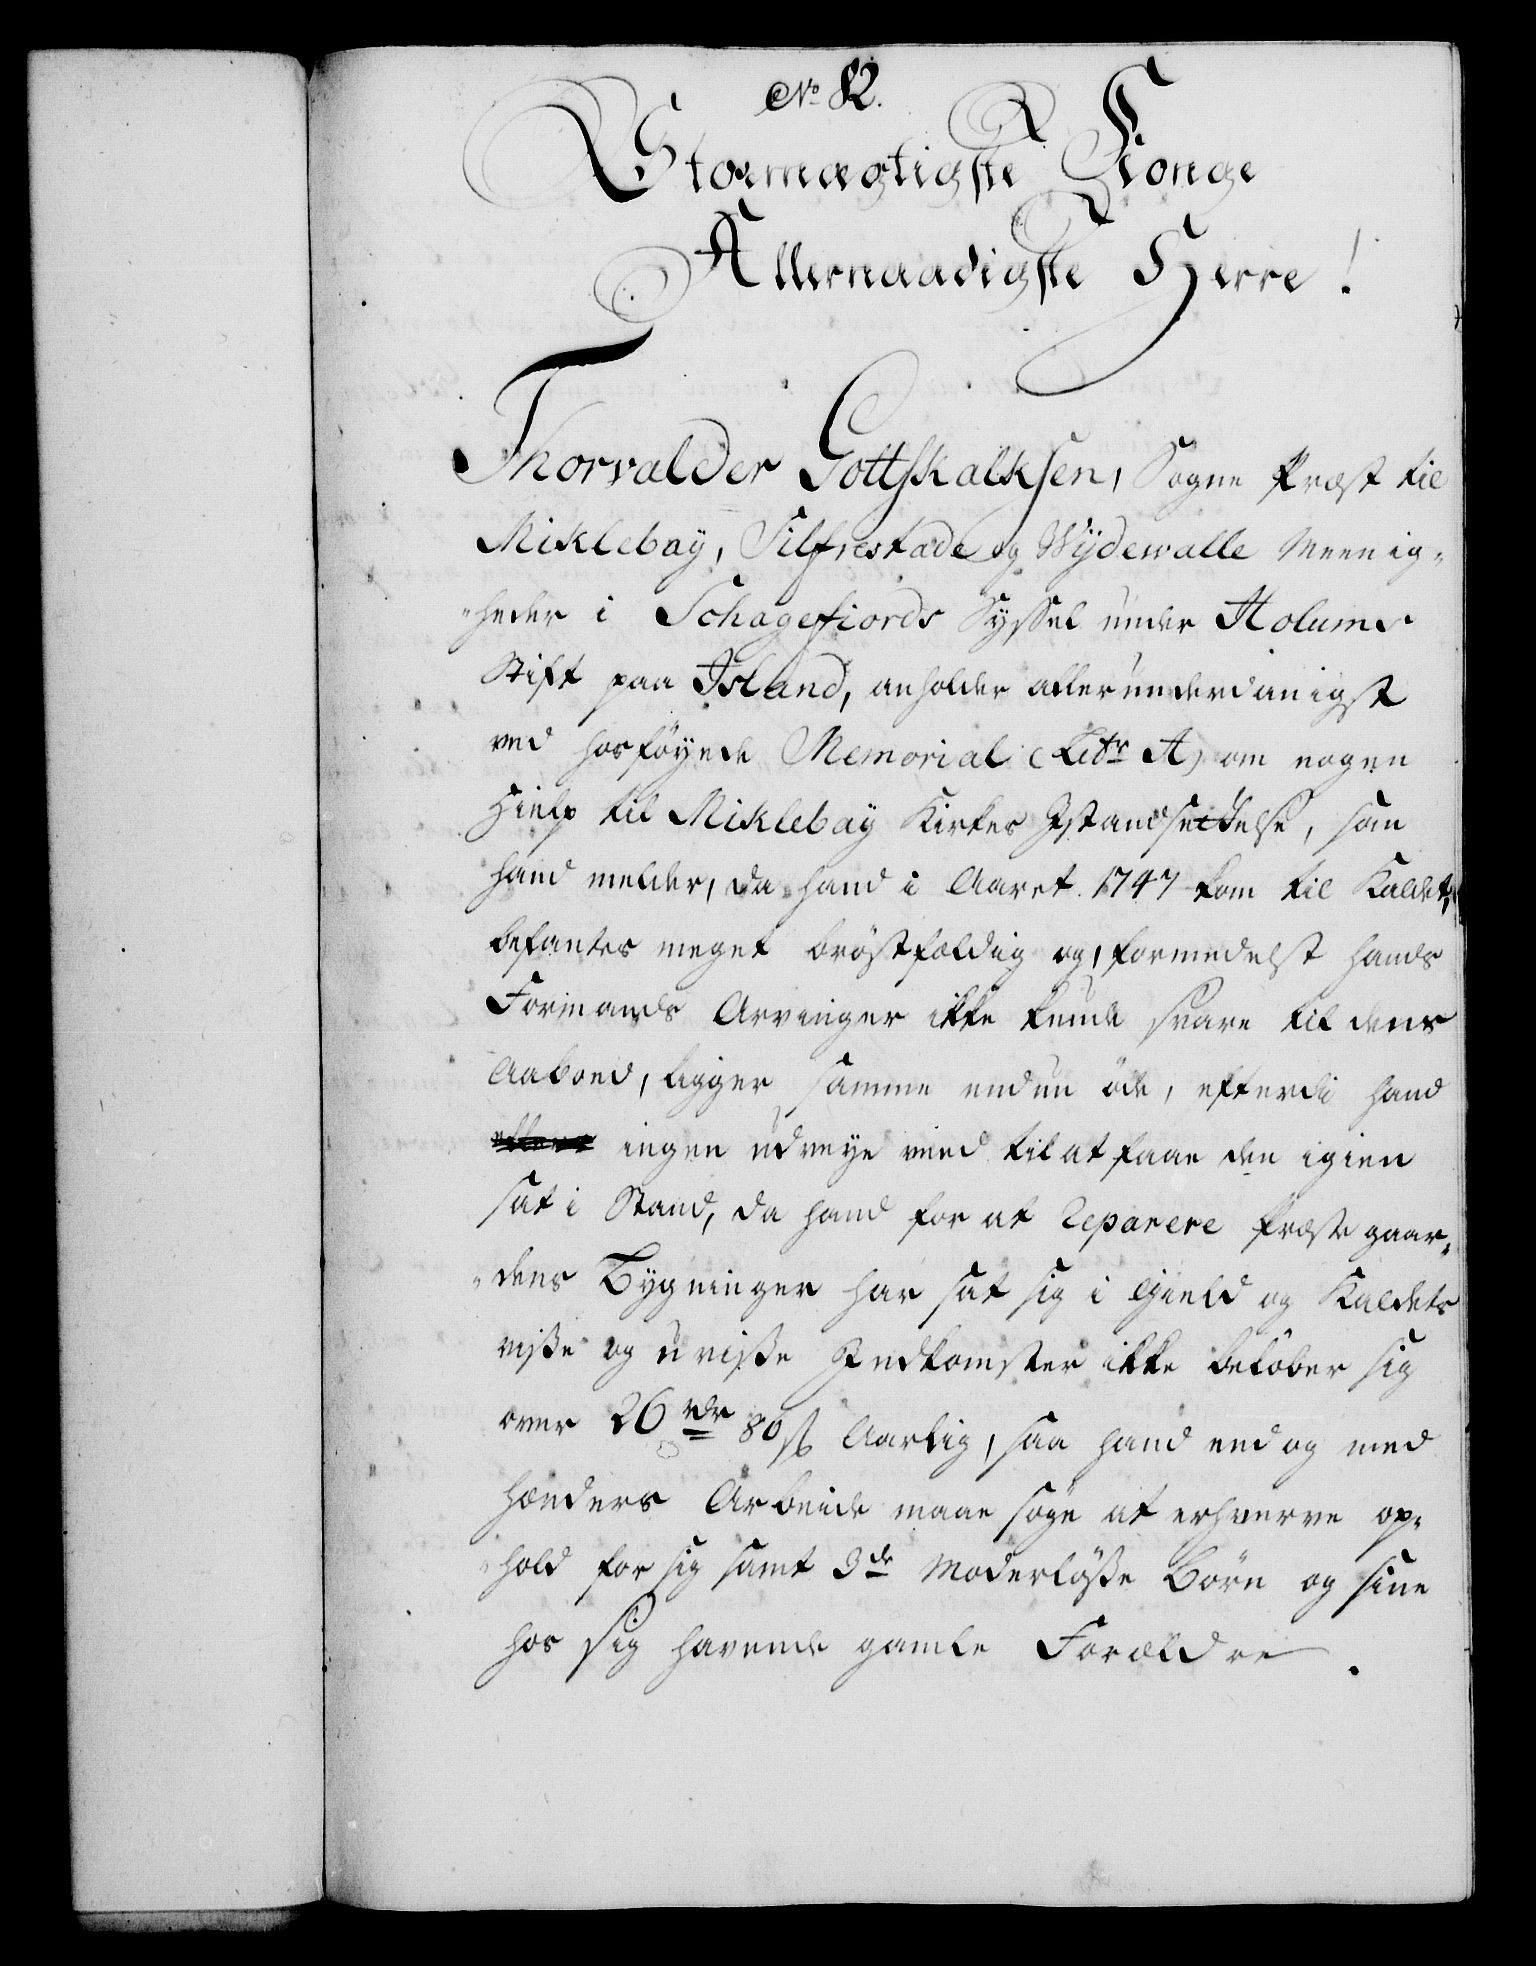 No 82.
Stormægtigste Konge
Allernaadigste Herre!
Thorvalder Gottskalksen, Sogne Præst til
Miklebaÿ, Silfrestade og Wÿdewalle Meenig-
heder i Schagefiords Syssel under Holums
Stift paa Island, anholder allerunderdanigst
ved hosföyede Memorial (Litr A) om nogen
Hielp til Miklebaÿ Kirkes Istandsettelse, som
hand melder, da hand i Aaret 1747 kom til Kaldet,
befantes meget bröstfoldig og, formedelst hands
Formands Arvinger ikke kunde svare til dens
Aaboed, ligger samme endnu öde, efterdi hand
ingen udveye veed til at faae den igien
sat i Stand, da hand for at Reparere Præstegaar-
dens Bygninger har sat sig i Gield og Kaldets
visse og uvisse Indkomster ikke belöber sig
over 26 rdr 80 ß Aarlig, saa hand endog med
hænders Arbeide maae söge at erhverve op-
hold for sig samt 3de Moderlösse Börn og sine
hos sig havende gamle Forældre.